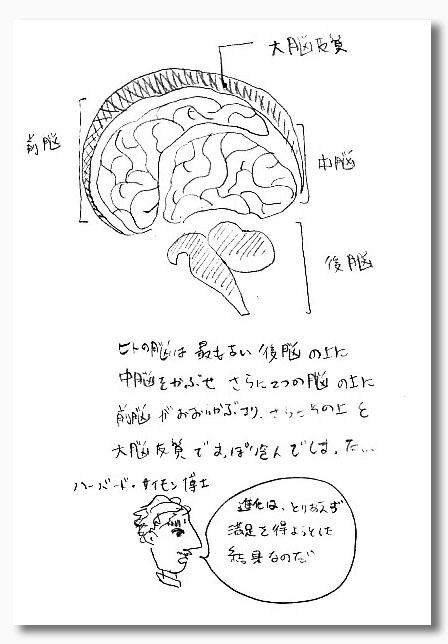 大脳皮質
前脳
中脳
後脳
ヒトの脳は 最も古い 後脳 の上に
中脳をかぶせ さらに2つの脳 の上に
前脳 がおおいかぶさり、さらにその上 を
大脳皮質 ですっぽり包んでしまった…
ハーバード・サイモン博士
進化は、とりあえず
満足を得ようとした
結果なのだ